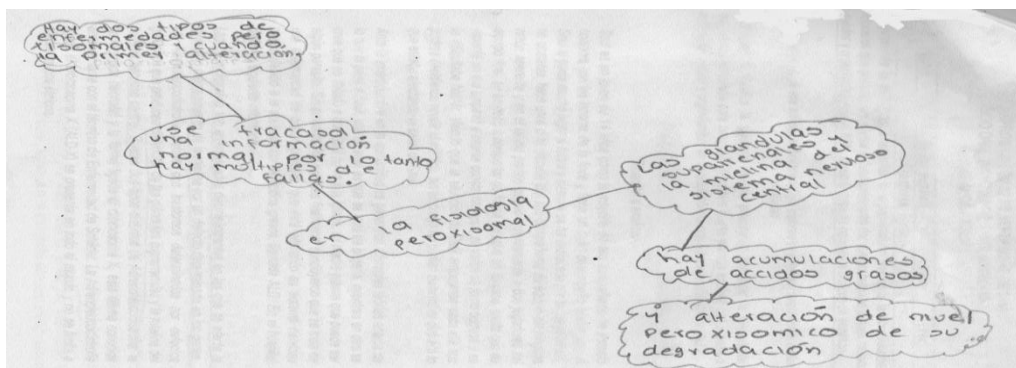 Hay dos tipos de
enfermedades pero
xisomales, cuando
la primer alteración
se fracasa
una información
normal por lo tanto
hay múltiples de
fallas.
en la fisiología
peroxisomal
Las glandulas
suprarenales y
la mielina del
sistema nervioso
central
hay acumulaciones
de accidos grasos
y alteración de nivel
peroxisomico de su
degradación